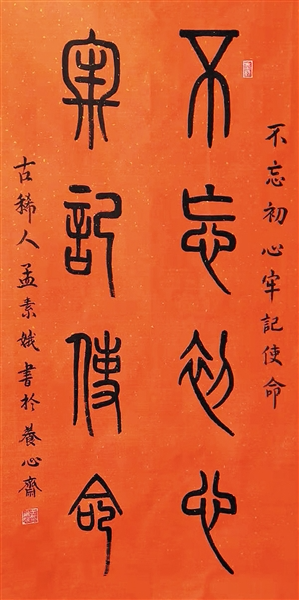 不忘初心牢記使命
不忘初心
牢記使命
古稀人孟素娥書於養心齋